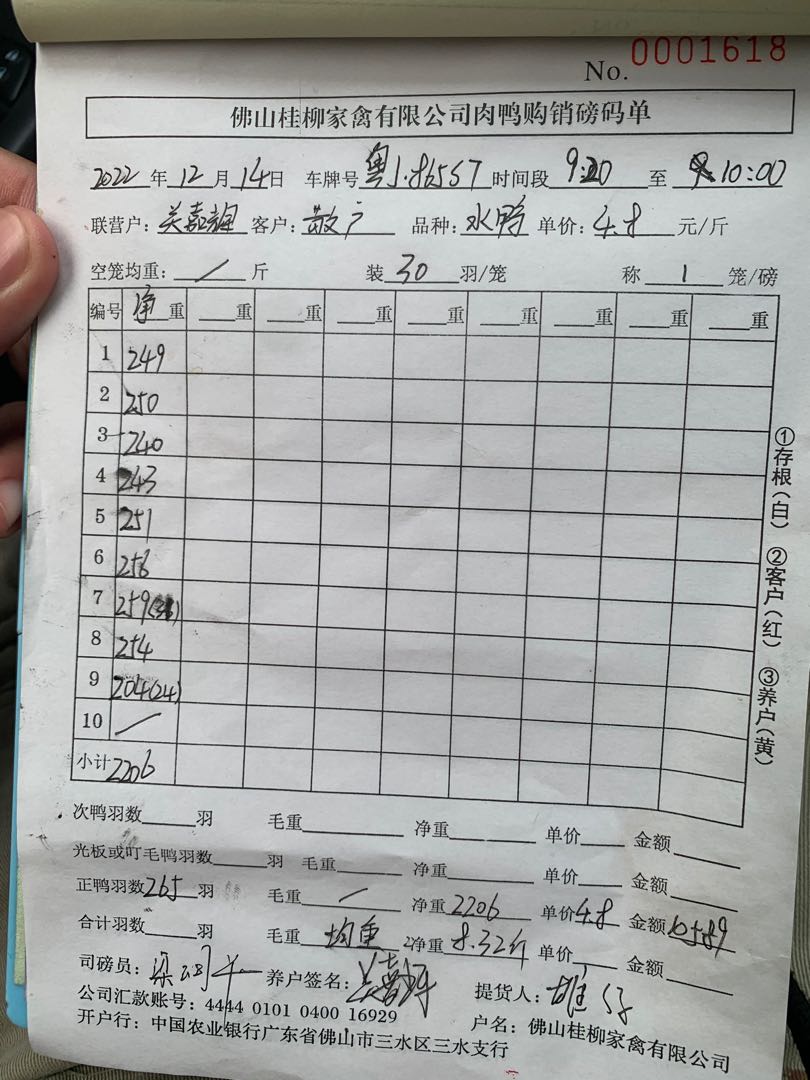 No. 0001618
佛山桂柳家禽有限公司肉鸭购销磅码单
2022年12月14日 车牌号粤J·86557时间段9:20至10:00
联营户:关嘉辉 客户:散户 品种:水鸭 单价:4.8元/斤
空笼均重:/斤 装30羽/笼 称1笼/磅
编号 净重 重 重 重 重 重 重 重 重
1 249
2 250
3 240
4 243
5 251
6 256
7 259(31)
8 254
9 204(24)
10 /
小计 2206
①存根(白) ②客户(红) ③养户(黄)
次鸭羽数 羽 毛重 净重 单价 金额
光板或叮毛鸭羽数 羽 毛重 净重 单价 金额
正鸭羽数265羽 毛重/ 净重2206 单价4.8 金额10589
合计羽数 羽 毛重 均重 净重8.32斤 单价 金额
司磅员: 养户签名:关嘉辉 提货人:
公司汇款账号:4444 0101 0400 16929
户名:佛山桂柳家禽有限公司
开户行:中国农业银行广东省佛山市三水区三水支行